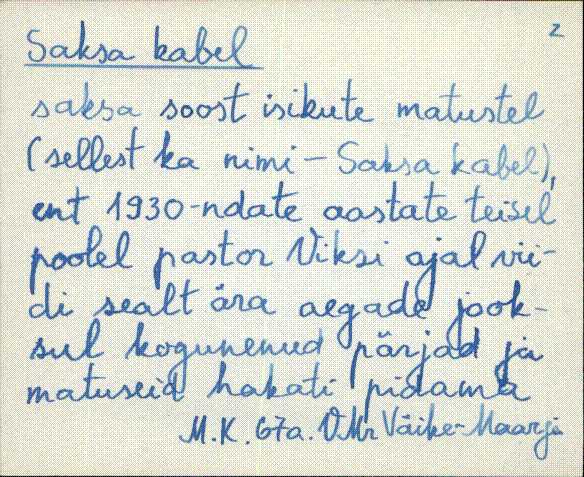 2
Saksa kabel
saksa soost isikute matustel
(sellest ka nimi - Saksa kabel),
ent 1930-ndate aastate teisel
poolel pastor Viksi ajal vii-
di sealt ära aegade jook-
sul kogunenud pärjad ja
matuseid hakati pidama
M.K. 67a. VMr Väike-Maarja